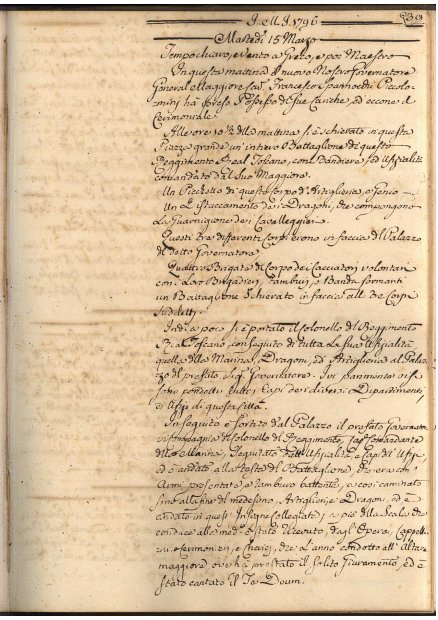 J. M. J. 1796
539
Martedì 15 Marzo
Tempo chiaro, e vento a Greco, e poi Maestro
In questa mattina il nuovo Nostro Governatore
Generale Maggiore Cav. Francesco Spannocchi Piccolo-
mini hà preso Possesso di sue Cariche, ed eccone il
Cerimoniale
Alle ore 10½ della mattina si è schierato in questa
Piazza grande un'intiero Battaglione di questo
Reggimento Real Toscano, con Bandiera, ed Ufizialità
comandato dal suo Maggiore.
Un Picchetto di questo Corpo d'Artiglieria, e Genio
Un Distaccamento dei Dragoni, che compongono
la Guarnigione dei Cavalleggieri
Questi tre differenti Corpi erono in faccia al Palazzo
del detto Governatore
Quattro Brigate del Corpo dei Cacciatori volontari
con i loro Brigadieri, Tamburi, e Banda formanti
un Battaglione schierato in faccia alli tre Corpi
suddetti
Indi a poco si è portato il Colonello del Reggimento
R. Toscano, con seguito di tutta la sua Ufizialità
quella della Marina, Dragoni, ed Artiglieria al Palaz-
zo del prefato Sig. Governatore. Ivi parimente vi si
sono condotti tutti i Capi dei diversi Dipartimenti,
e Ufizi di questa Città.
In seguito è sortito dal Palazzo il prefato Governatore
in compagnia del Colonello del Reggimento,
della Marina, seguitato dall'Ufizialità, e Capi d'Ufizi,
ed è andato alla testa del Battaglione, che era con
Armi presentate, e Tamburo battente, e così caminato
sino alla fine del medesimo, Artiglieria, e Dragoni, ed è
andato in questa Insigne Collegiata; a piè della Scala, che
conduce alla med. è stato ricevuto dagli Operai, Cappell-
ani, Cerimonieri, e Cherici, che l'anno condotto all'Altar
maggiore ove hà prestato il solito Giuramento, ed è
stato cantato il Te Deum.